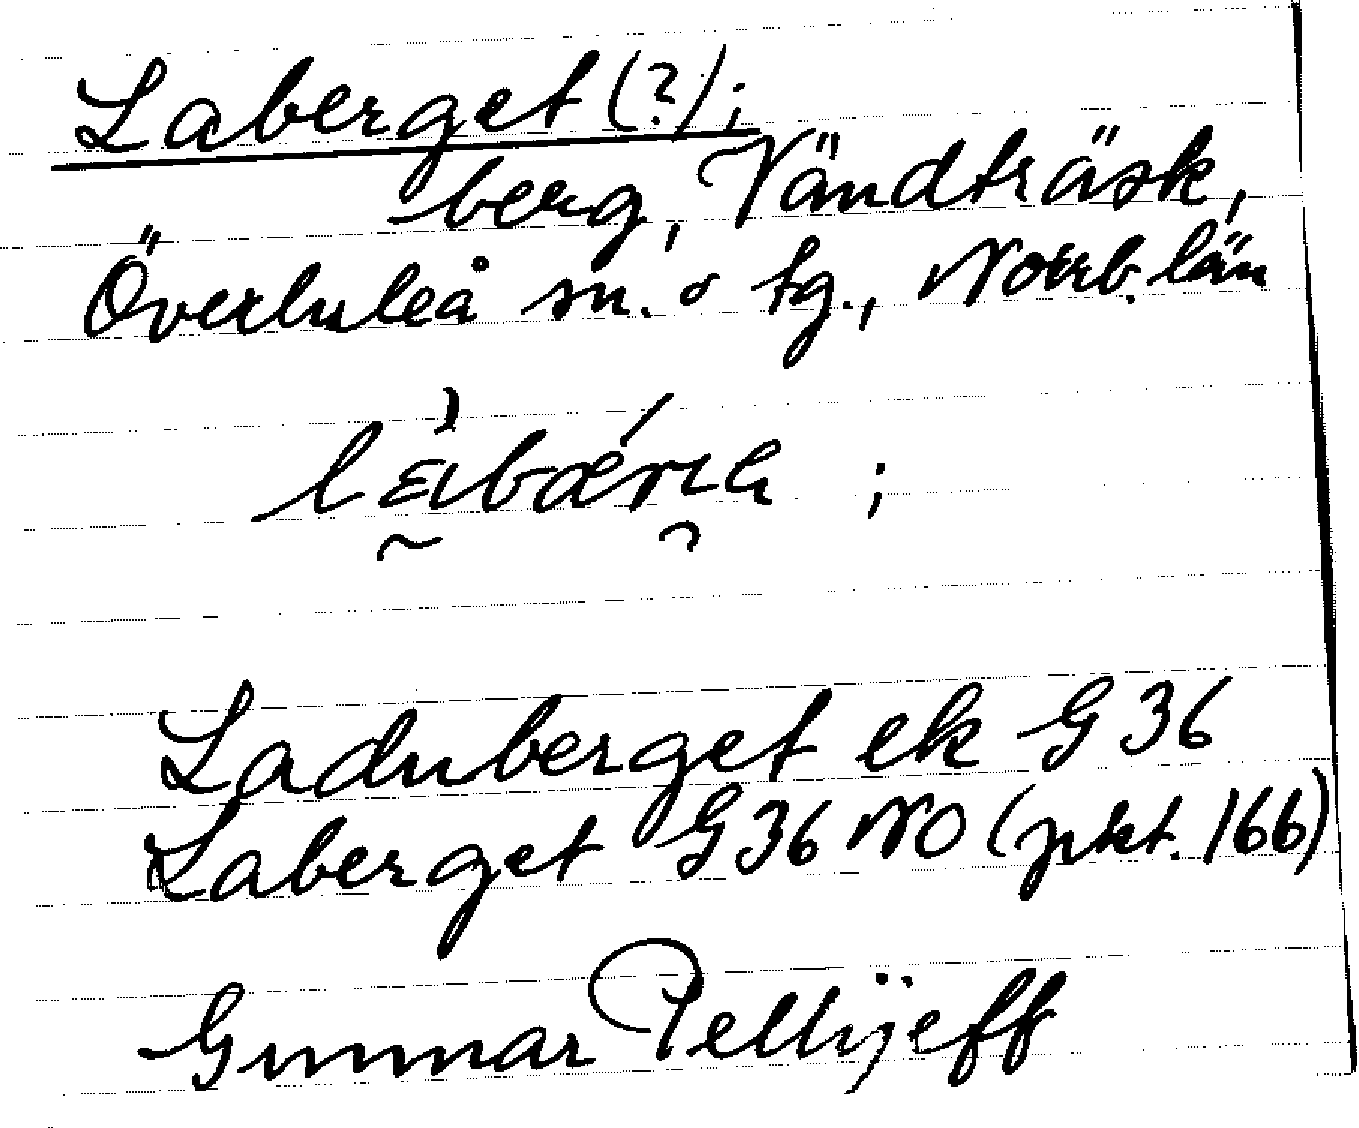 Laberget (?);
berg, Vändträsk,
Överluleå sn. o tg., Norrb. län
;
Laduberget ek G 36
Laberget G 36 NO (pkt. 166)
Gunnar Pellijeff